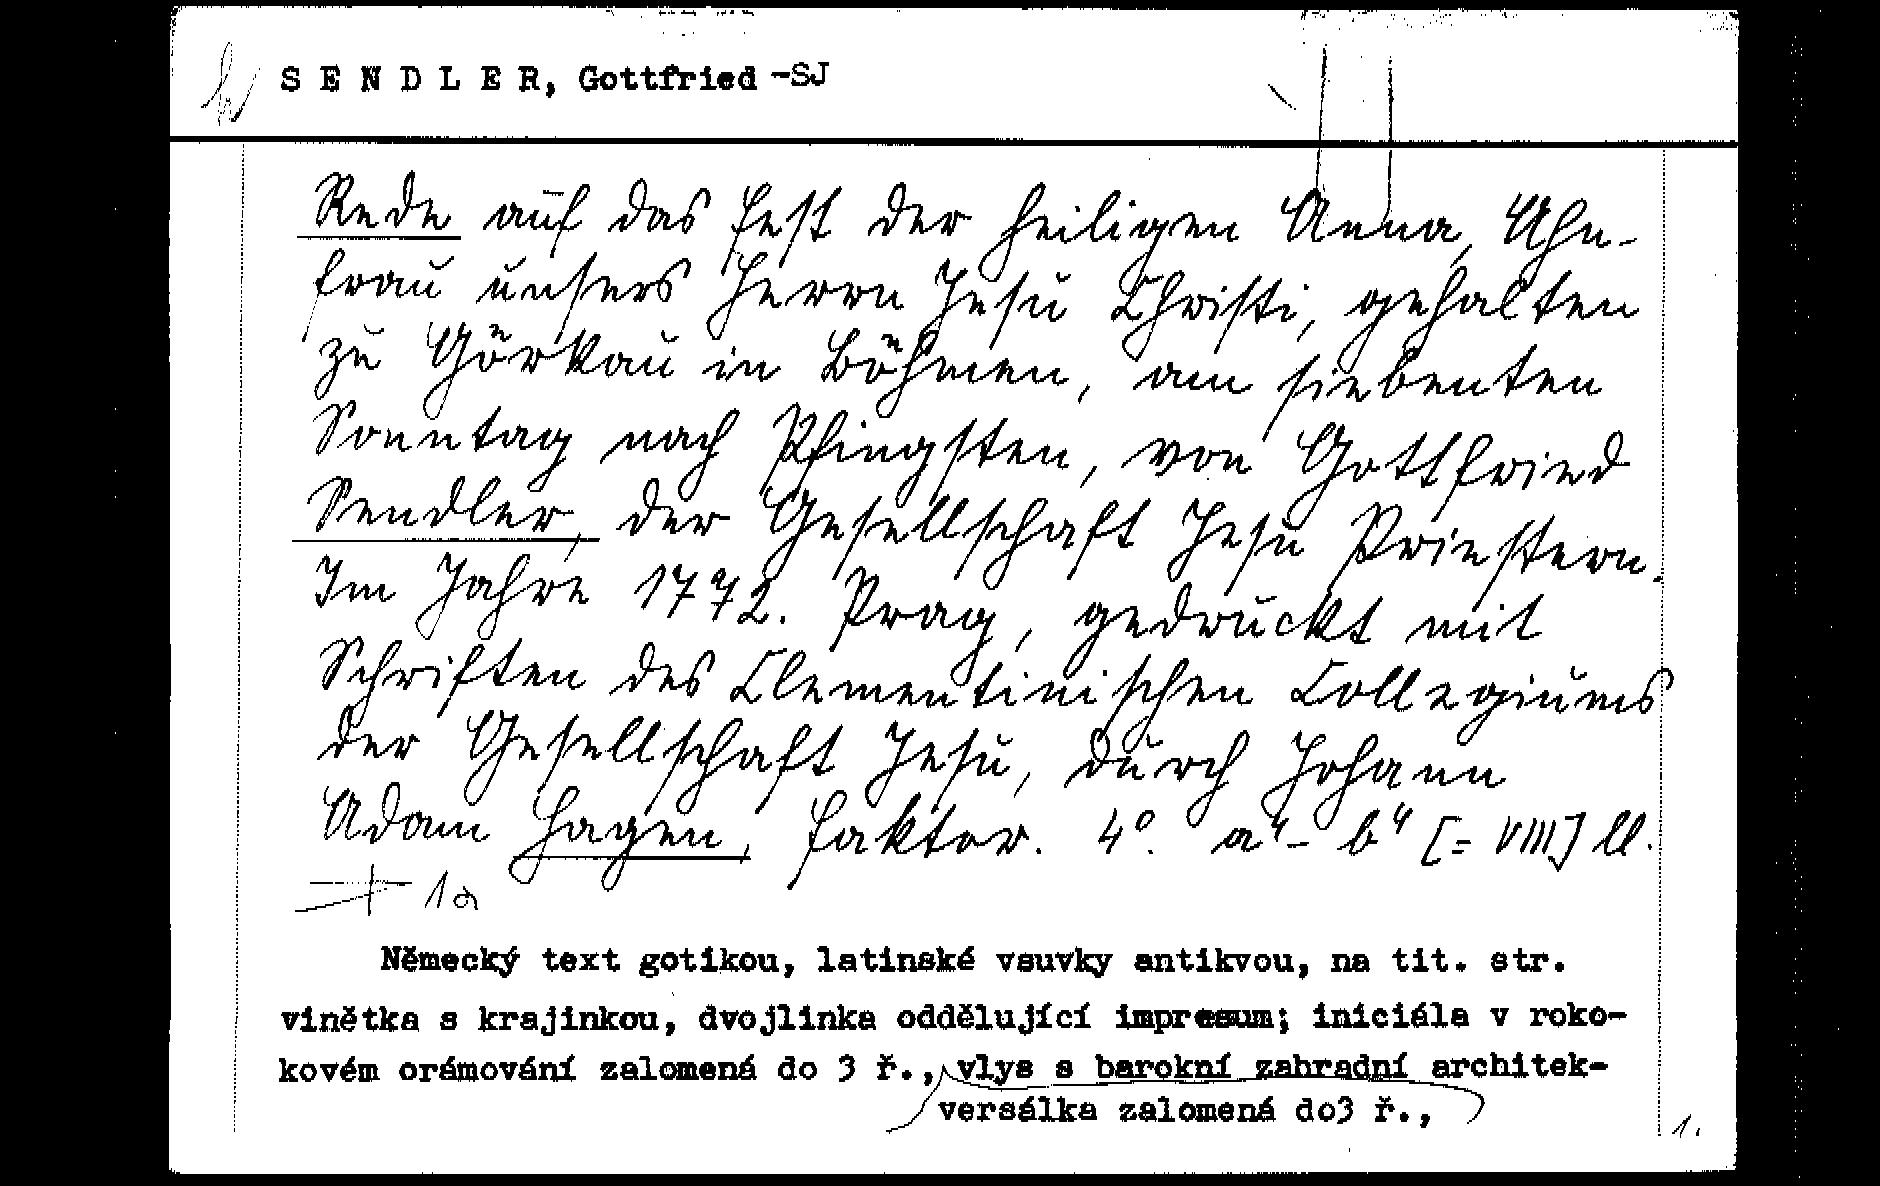 SENDLER, Gottfried -SJ
Rede auf das Fest der heiligen Anna, Ahn-
frau unsers Herrn Jesu Christi, gehalten
zu Görkau in Böhmen, am siebenten
Sonntag nach Pfingsten, von Gottfried
Sendler, der Gesellschaft Jesu Priestern.
Im Jahre 1772. Prag, gedruckt mit
Schriften des Clementinischen Collegiums
der Gesellschaft Jesu, durch Johann
Adam Hagen, Faktor. 4° a⁴- b⁴ [= VIII] ll.
Německý text gotikou, latinské vsuvky antikvou, na tit. str.
vinětka s krajinkou, dvojlinka oddělující impresum; iniciála v roko-
kovém orámování zalomená do 3 ř., vlys s barokní zahradní architek-
versálka zalomená do3 ř.,
1.